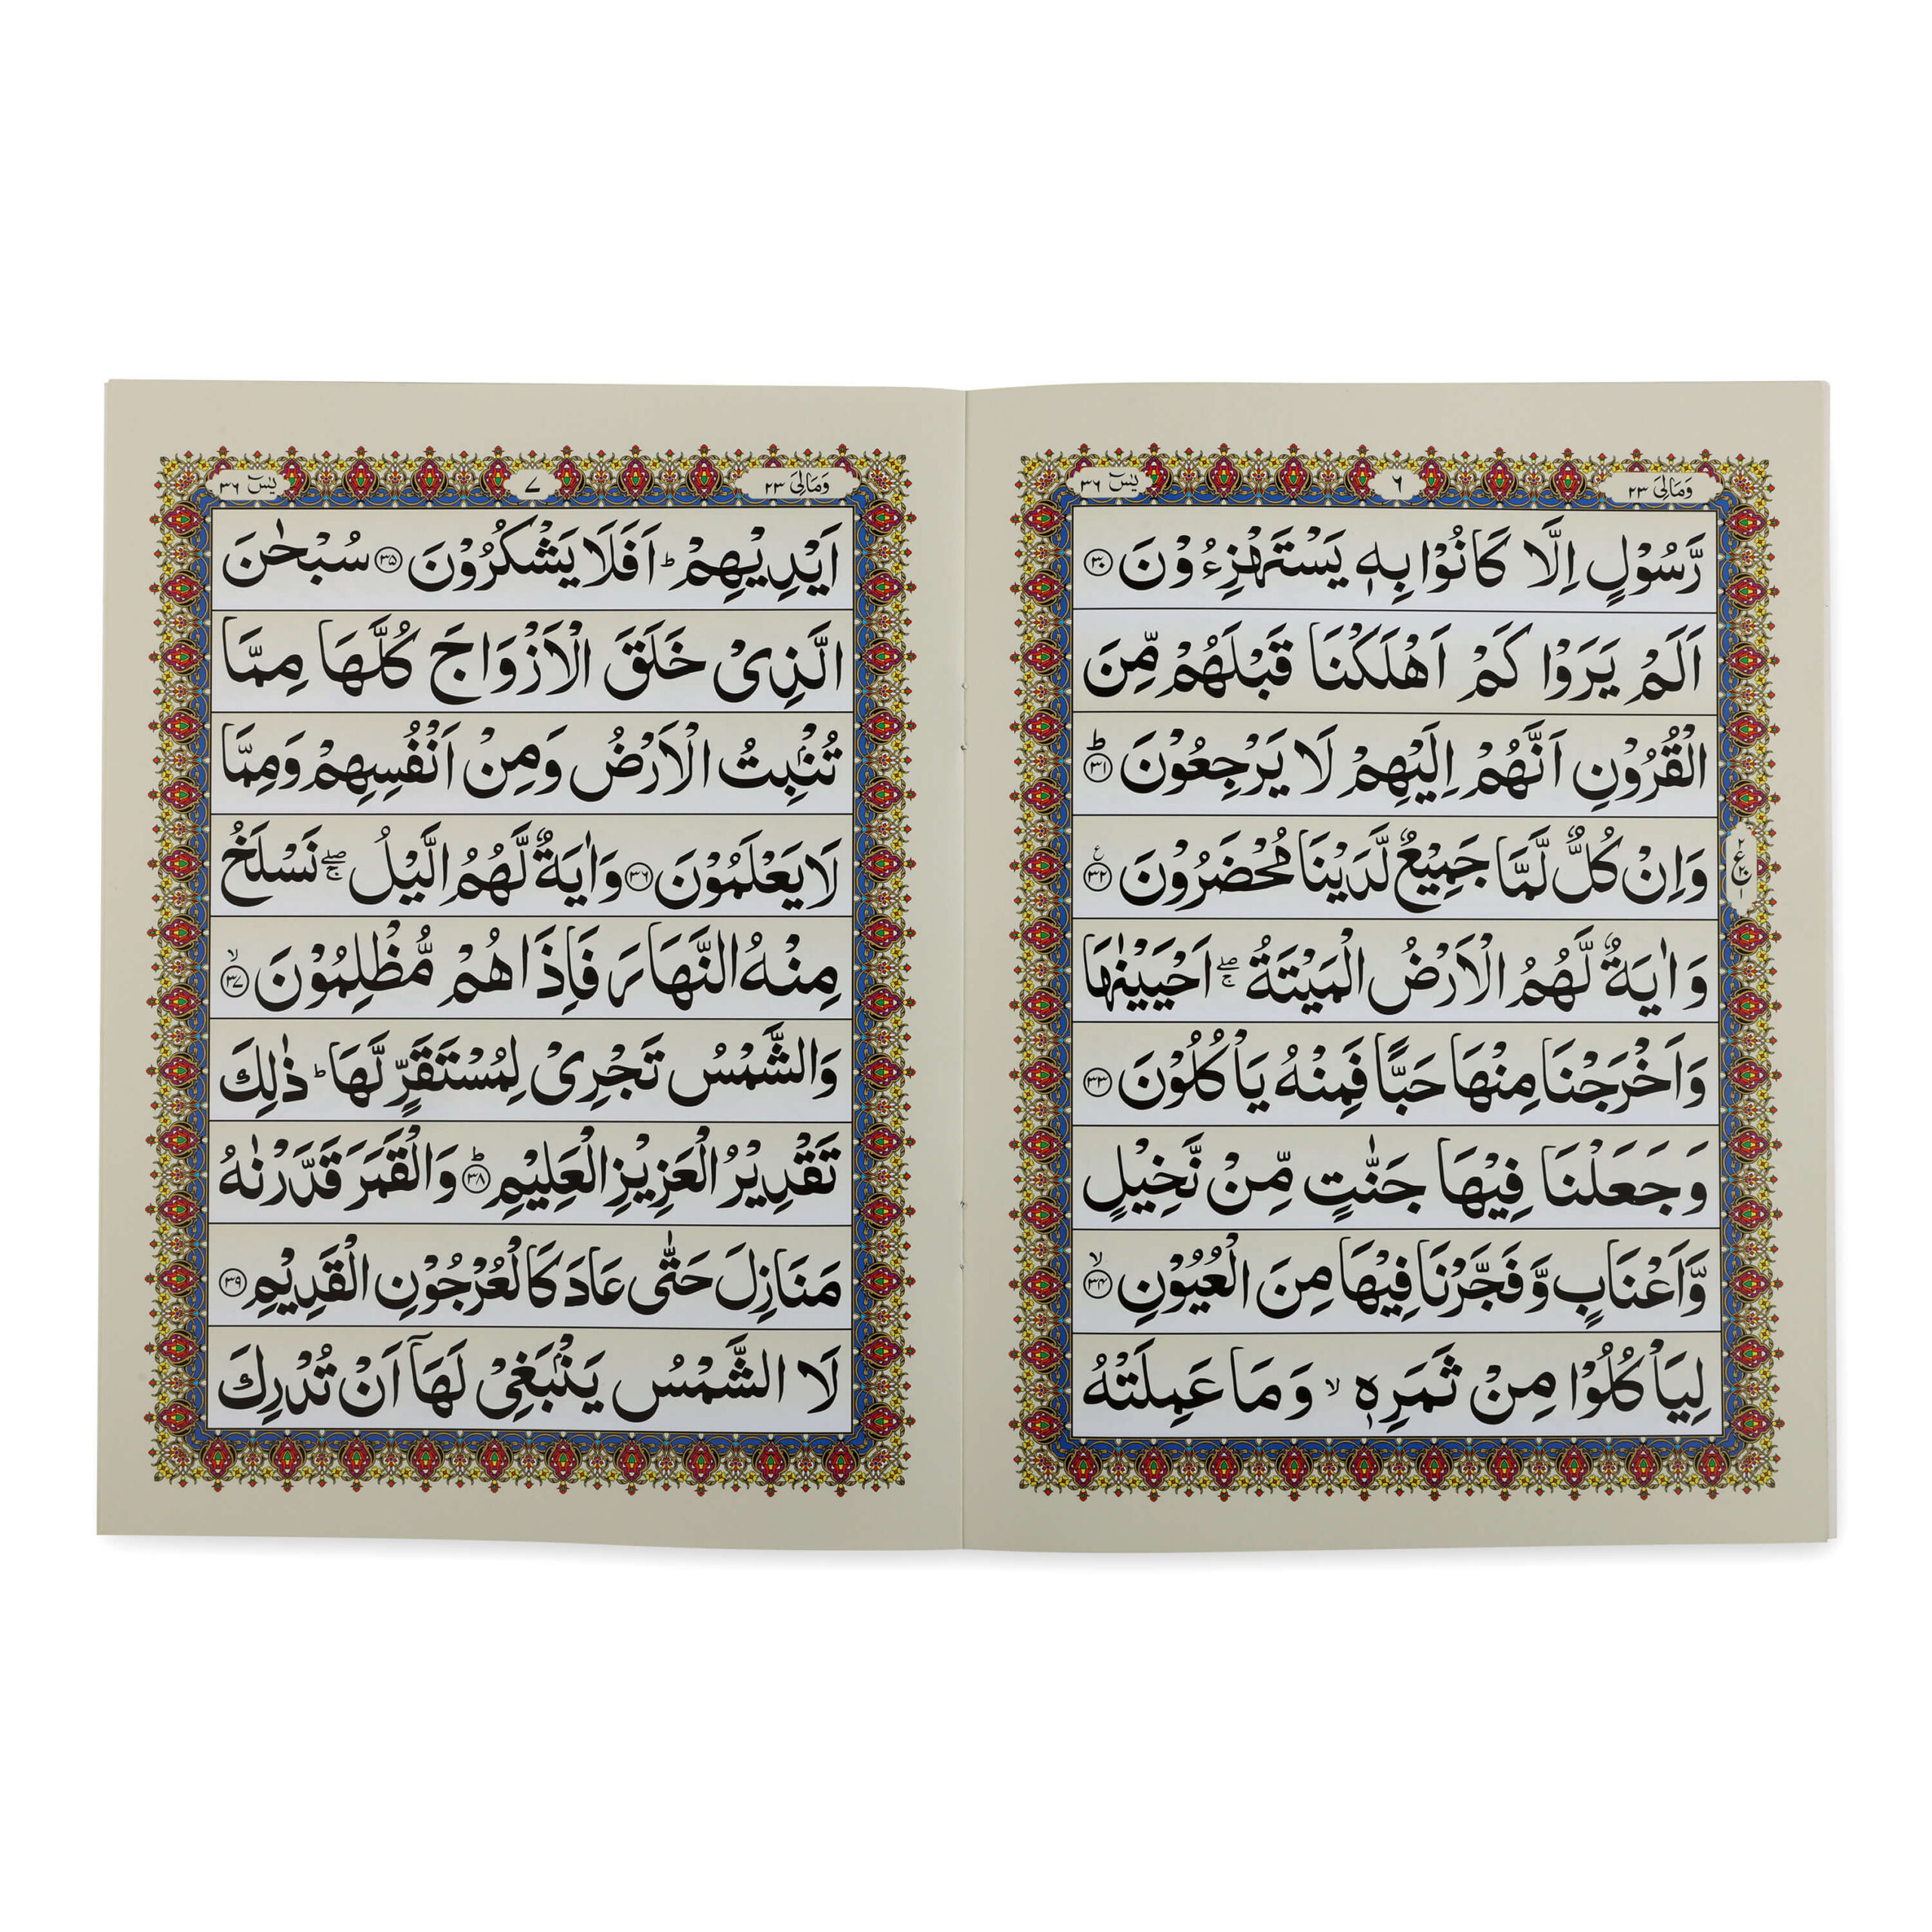 وَمَالِیَ ٢٣
٦
یٰسٓ ٣٦
رَّسُوْلٍ اِلَّا كَانُوْا بِهٖ يَسْتَهْزِءُوْنَ ﴿٣٠﴾
اَلَمْ يَرَوْا كَمْ اَهْلَكْنَا قَبْلَهُمْ مِّنَ
الْقُرُوْنِ اَنَّهُمْ اِلَيْهِمْ لَا يَرْجِعُوْنَ ﴿٣١﴾ؕ
وَاِنْ كُلٌّ لَّمَّا جَمِيْعٌ لَّدَيْنَا مُحْضَرُوْنَ ﴿٣٢﴾ع
وَاٰيَةٌ لَّهُمُ الْاَرْضُ الْمَيْتَةُ ۖۚ اَحْيَيْنٰهَا
وَاَخْرَجْنَا مِنْهَا حَبًّا فَمِنْهُ يَاْكُلُوْنَ ﴿٣٣﴾
وَجَعَلْنَا فِيْهَا جَنّٰتٍ مِّنْ نَّخِيْلٍ
وَّاَعْنَابٍ وَّفَجَّرْنَا فِيْهَا مِنَ الْعُيُوْنِ ﴿٣٤﴾ۙ
لِيَاْكُلُوْا مِنْ ثَمَرِهٖ ۙ وَمَا عَمِلَتْهُ
٢
ع
٢٠
١
وَمَالِیَ ٢٣
٧
یٰسٓ ٣٦
اَيْدِيْهِمْ ؕ اَفَلَا يَشْكُرُوْنَ ﴿٣٥﴾ سُبْحٰنَ
الَّذِىْ خَلَقَ الْاَزْوَاجَ كُلَّهَا مِمَّا
تُنْۢبِتُ الْاَرْضُ وَمِنْ اَنْفُسِهِمْ وَمِمَّا
لَا يَعْلَمُوْنَ ﴿٣٦﴾ وَاٰيَةٌ لَّهُمُ الَّيْلُ ۖۚ نَسْلَخُ
مِنْهُ النَّهَارَ فَاِذَا هُمْ مُّظْلِمُوْنَ ﴿٣٧﴾ۙ
وَالشَّمْسُ تَجْرِىْ لِمُسْتَقَرٍّ لَّهَا ؕ ذٰلِكَ
تَقْدِيْرُ الْعَزِيْزِ الْعَلِيْمِ ﴿٣٨﴾ؕ وَالْقَمَرَ قَدَّرْنٰهُ
مَنَازِلَ حَتّٰى عَادَ كَالْعُرْجُوْنِ الْقَدِيْمِ ﴿٣٩﴾
لَا الشَّمْسُ يَنْۢبَغِىْ لَهَاۤ اَنْ تُدْرِكَ